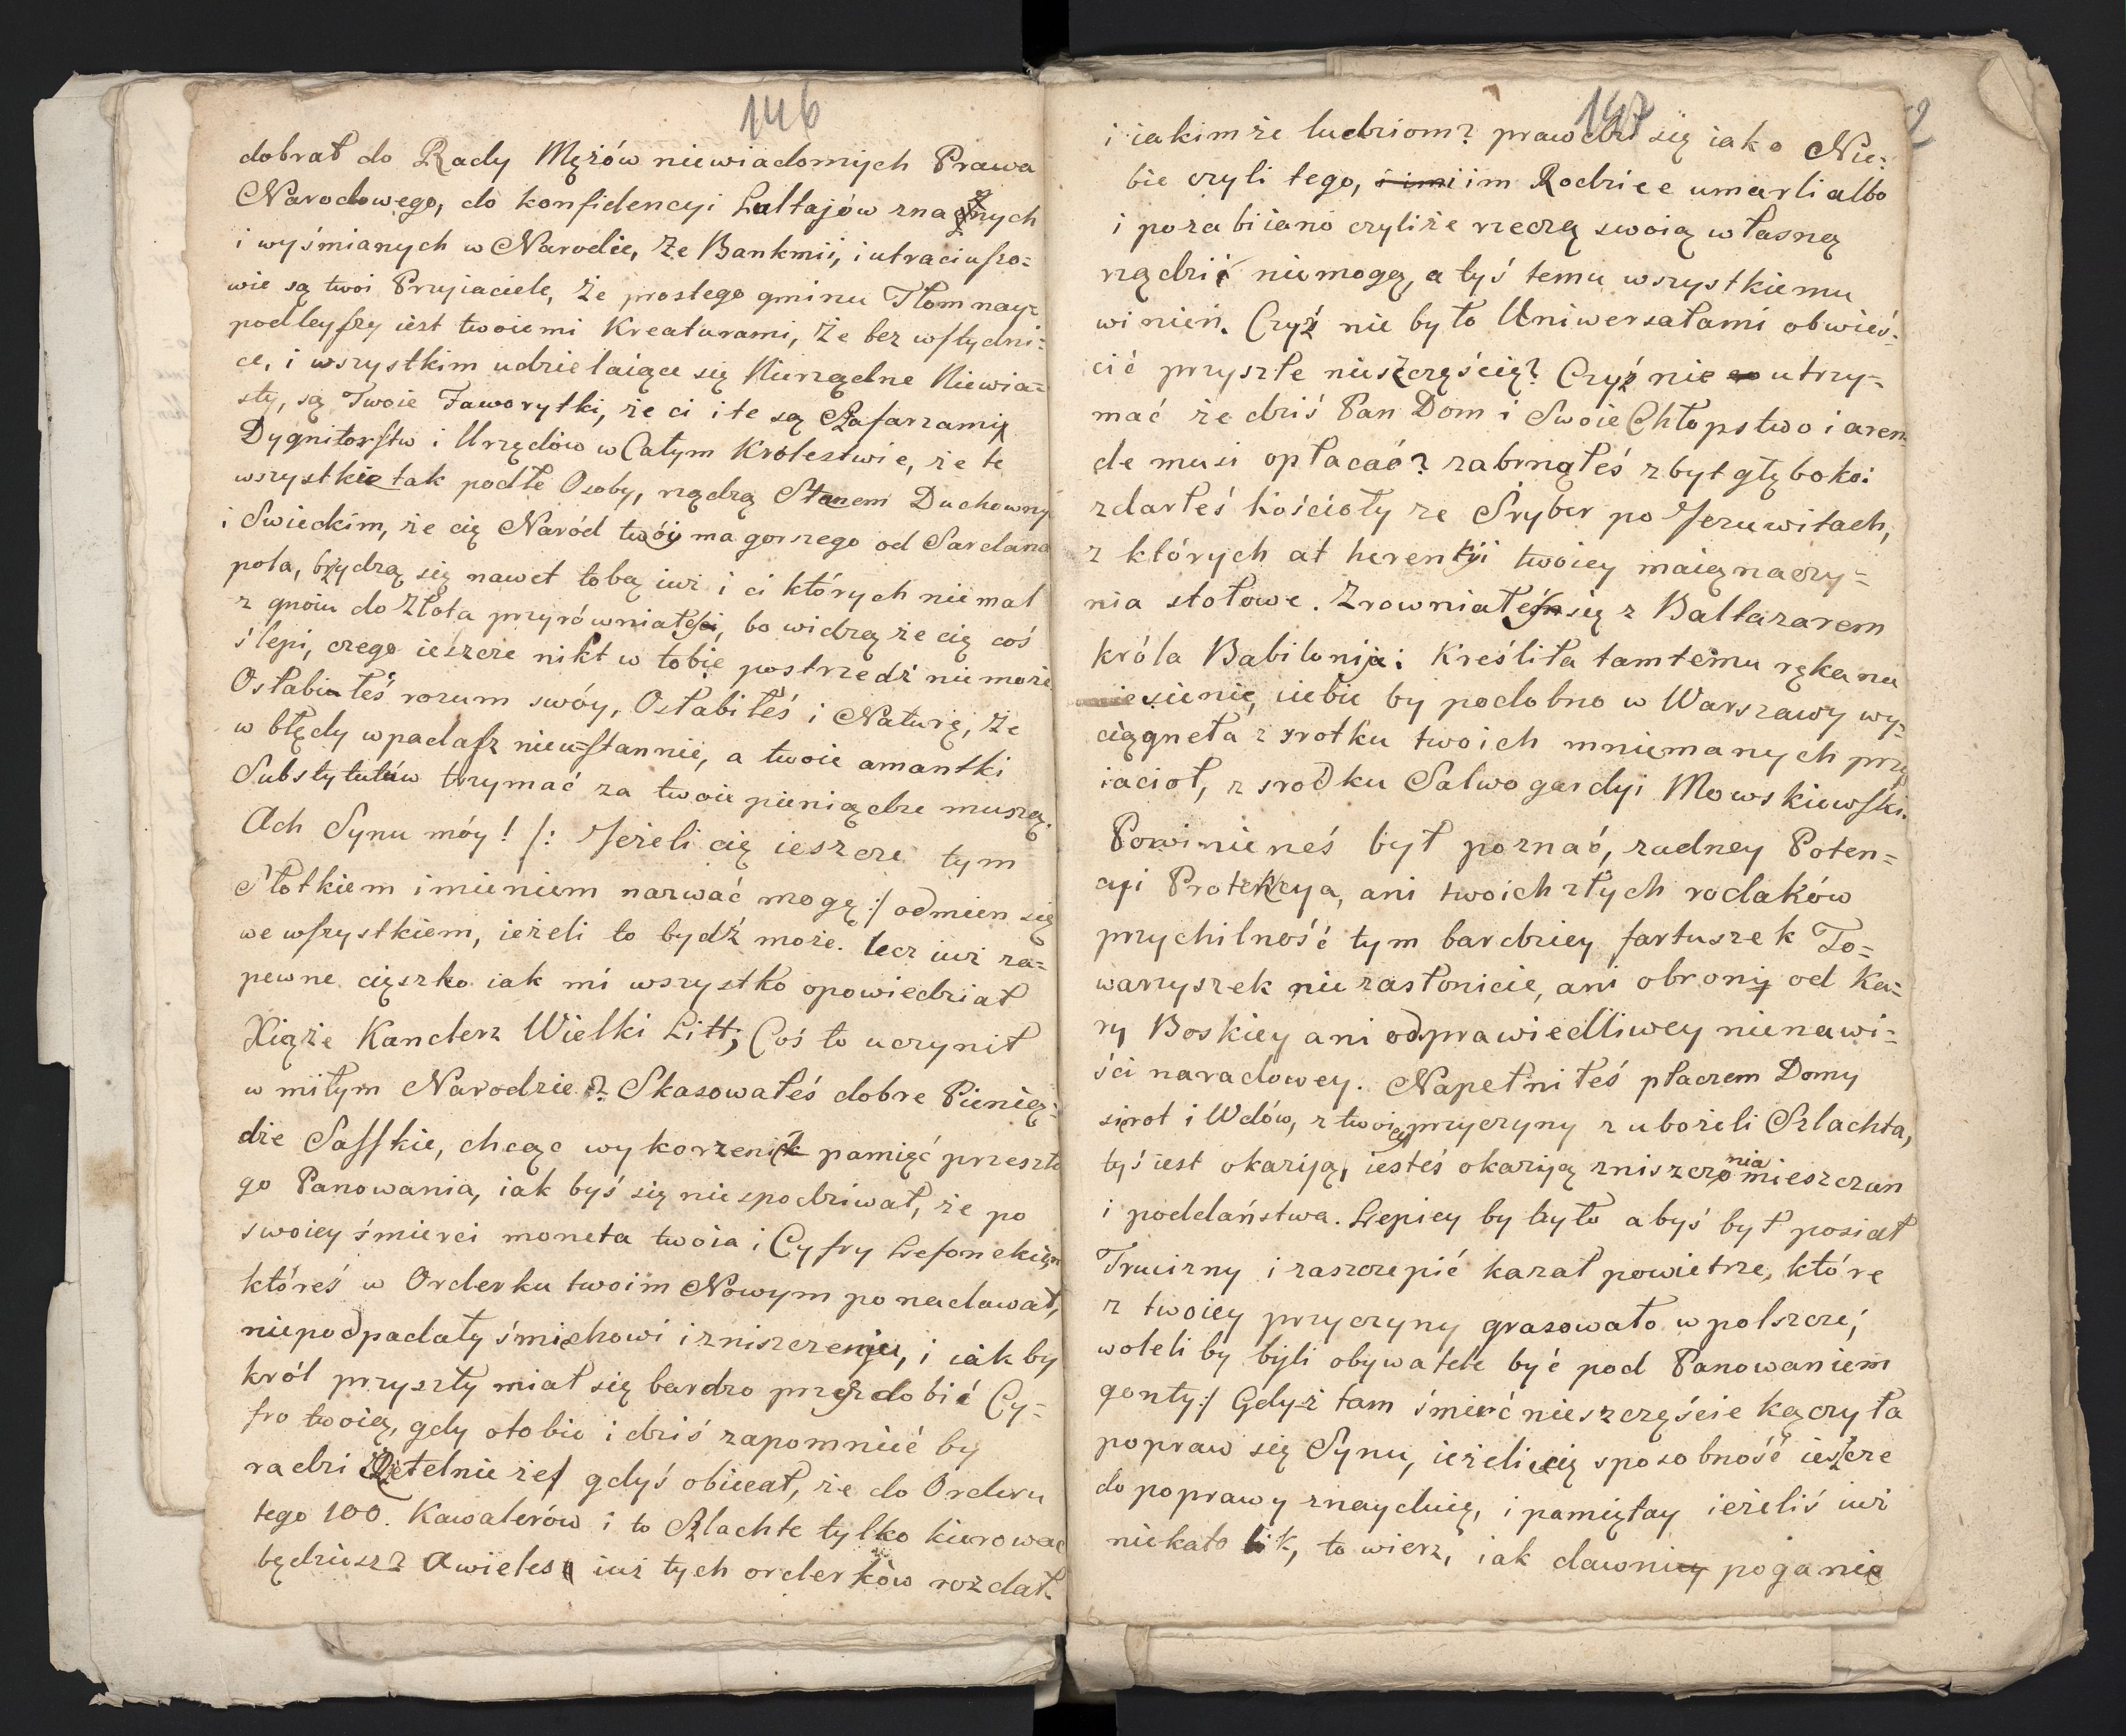 146
dobrał do Rady Mężów niewiadomych Prawa
Narodowego, do konfidencyi Łaltajów znacznych
i wyśmianych w Narodie, że Bankruii, i utraciuszo=
wie są twoi Przyiaciele, że prostego gminu Tłom nay=
podleyszy iest twoiemi Kreaturami, że bez wstydni=
ce, i wszystkim udzielaiące się Nierządne Niewia=
sty, są Twoie Faworytki, że ci i te są Szafarzami
Dygnitorstw i Urzędów w Całym Królestwie, że te
wszystkie tak podłe Osoby, rządzą Stanem Duchowny
i Swieckim, że cię Naród twóy ma gorszego od Sardana
pola, brzydzą się nawet tobą iuż i ci których niemal
z gnoiu do złota przyrówniałeś, bo widzą że cię coś
ślepi, czego ieszcze nikt w tobie postrzedź nie może
Osłabiałeś rozum swóy, Osłabiłeś i Naturę, że
w błędy wpadasz nieu=stannie, a twoie amantki
Substytutów trzymać za twoie pieniądze muszą.
Ach Synu móy! /: Jeżeli cię ieszcze tym
Słotkiem imieniem nazwać mogę :/ odmien się
we wszystkiem, ieżeli to bydź może. lecz iuż za=
pewne cięszko iak mi wszystko opowiedział
Xiąże Kanclerz Wielki Litt; Coś to uczynił
w miłym Narodzie? Skasowałeś dobre Pienię=
dze Sasskie, chcąc wykorzenić pamięć przeszłe
go Panowania, iak byś się nie spodziwał, że po
swoiey śmierci moneta twoia i Cyfry Lefonckiem
któreś w Orderku twoim Nowym ponadawał,
niepodpadały śmiechowi i zniszczeniu, i iak by
król przyszły miał się bardzo przyozdobić Cy=
fro twoią, gdy otobie i dziś zapomnieć by
radzi Rzetelnie żeś gdyś obiecał, że do Orderu
tego 100. Kawalerów i to Szlachte tylko kierować
będziesz? Awieleś iuż tych orderków rozdał
147
2
i iakimże ludziom? prawdzi się iako Nie=
bie czyli tego, im Rodzice umarli albo
i pozabiiano czyliże rzeczą swoią własną
rządzić niemogą, a tyś temu wszystkiemu
winien. Czyż nie było Uniwersałami obwieś=
cić przyszłe nieszczęście? Czyż nie utrzy=
mać że dziś Pan Dom i Swoie Chłopstwo i aren
de musi opłacać? zabrnąłeś zbyt głęboko:
zdarłeś kościoły ze Sryber po Jezuwitach,
z których at herentyi twoiey maią naczy=
nia stołowe. Zrowniałeś się z Baltazarem
króla Babilonija: Kreśliła tamtemu ręka na
ścienie, ciebie by podobno w Warszawy wy=
ciągneła z srotku twoich mniemanych przy
iacioł, z srodku Salwogardyi Mowskiewski.
Powinieneś był poznać, żadney Poten=
cyi Protekcya, ani twoich złych rodaków
przychilność tym bardziey fartuszek To=
warzyszek nie zasłonicie, ani obronią od Ka=
ry Boskiey ani odprawiedliwey nienawi=
ści naradowey. Napełniłeś płaczem Domy
sierot i Wdów, z twoiey przyczyny zubożeli Szlachta,
tyś iest okaziją, iesteś okaziją zniszczenia mieszczan
i poddaństwa. Lepiey by było abyś był posiał
Trucizny i zaszczepić kazał powietrze, które
z twoiey przyczyny grasowało w polszcze,
woleli by byli obywatele być pod Panowaniem
gonty:/ Gdyż tam śmierć nieszczęście kączyła
popraw się Synu, ieżeli cię sposobność ieszcze
do poprawy znaydzie, i pamiętay ieżeliś iuż
niekatolik, to wierz, iak dawni poganie